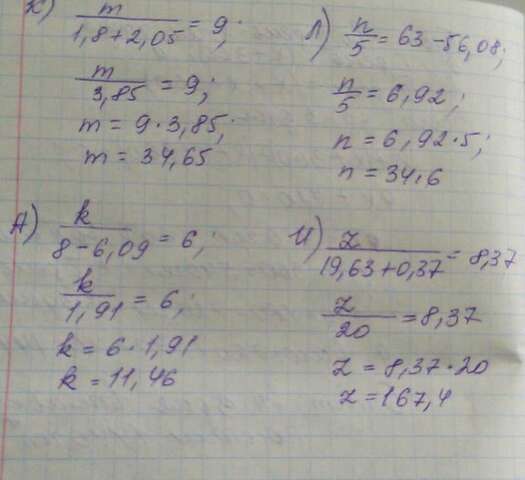 К) m/(1,8+2,05) = 9;
m/3,85 = 9;
m = 9·3,85;
m = 34,65
Л) n/5 = 63-56,08;
n/5 = 6,92;
n = 6,92·5;
n = 34,6
А) k/(8-6,09) = 6;
k/1,91 = 6;
k = 6·1,91
k = 11,46
И) z/(19,63+0,37) = 8,37
z/20 = 8,37
z = 8,37·20
z = 167,4